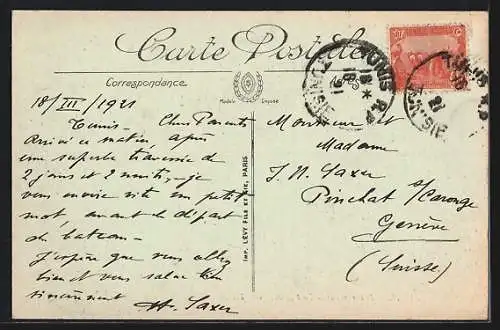 Carte Postale
Correspondance
Modèle Déposé
18/III/1921
Tunis - Chers Parents
Arrivé ce matin, après
une superbe traversée de
2 jours et 2 nuits, - je
vous envoie vite un petit
mot, avant le départ
du bateau -
J'espère que vous allez
bien et vous salue bien
sincèrement
Saxer
IMP. LÉVY FILS ET CIE, PARIS
TUNIS R.P
TUNISIE
18
21
TUNISIE
21
Monsieur et
Madame
J. N. Saxer
Pinchat s/Carouge
Genève
(Suisse)